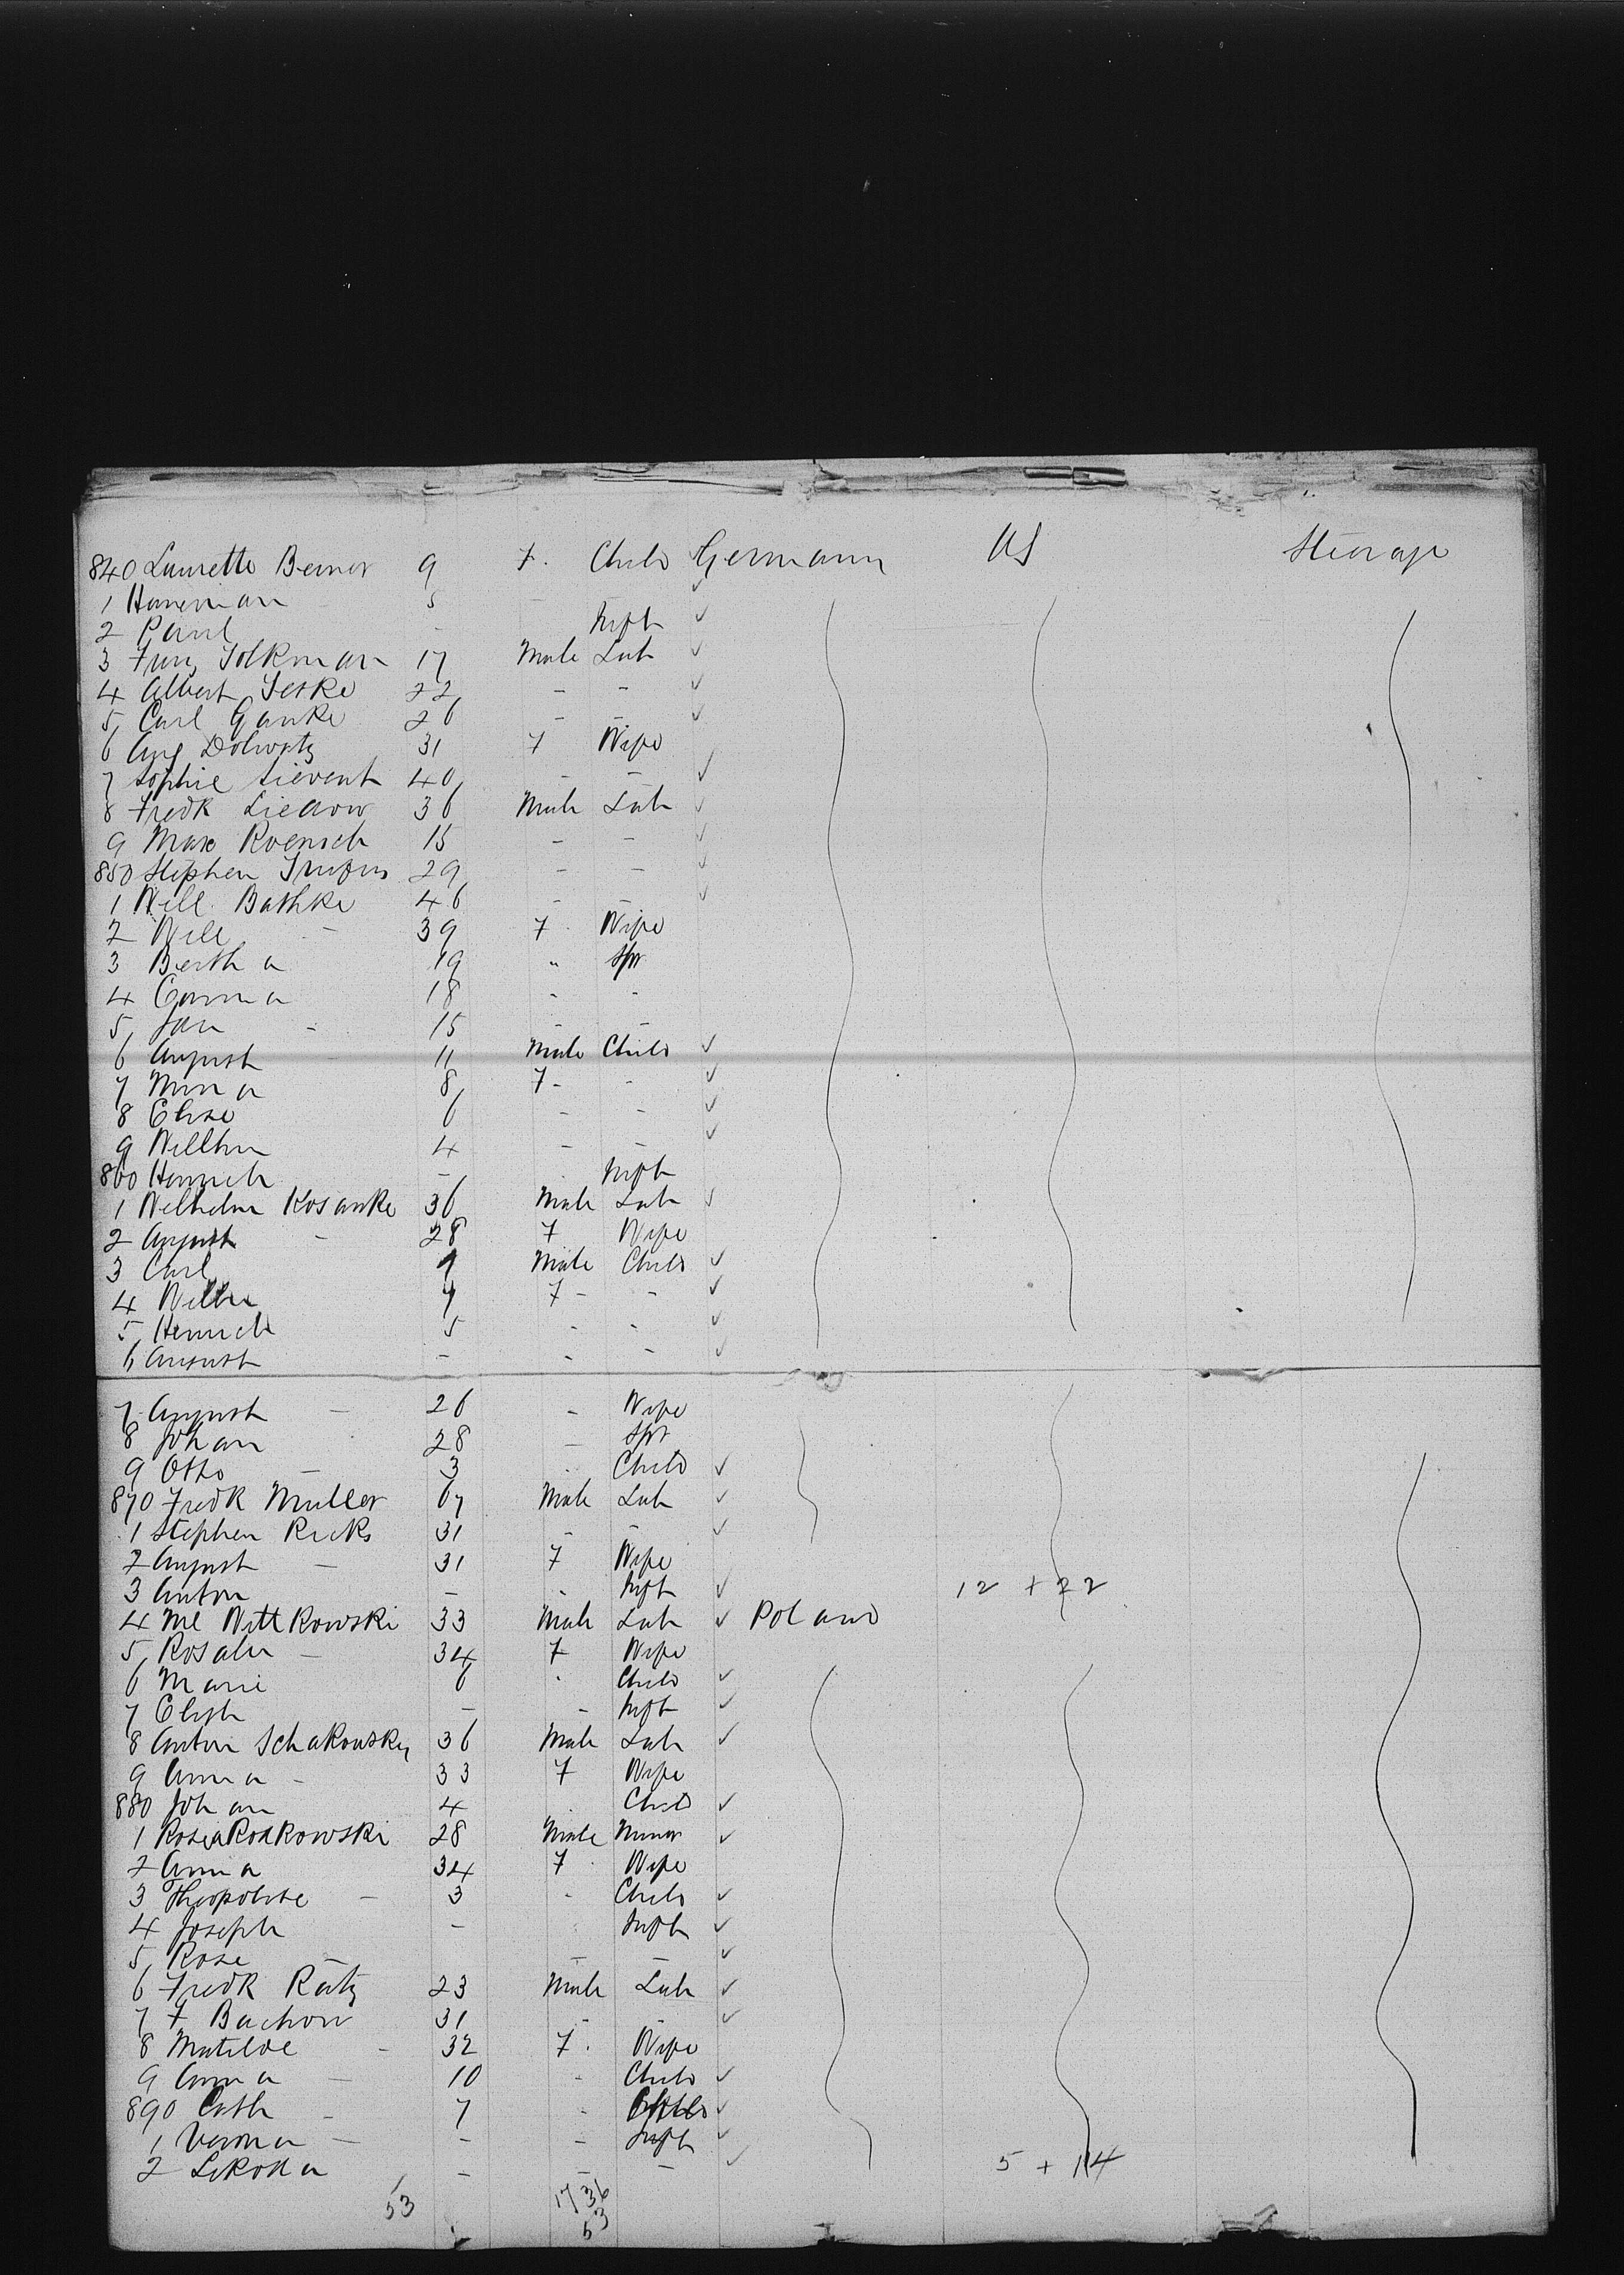 840 Laurette Bemer 9 F. Child Germann US Steerage
1 Haneman 5 -
2 Paul - Inft ✓
3 Volkman 17 Male Lab ✓
4 Albert Jeske 22 - - ✓
5 Carl Ganke 26 - - ✓
6 Aug 31 F Wife
7 Sophie Sievent 40 - - ✓
8 Fredk 36 Male Lab ✓
9 Max Roensch 15 - - ✓
850 Stephen 29 - - ✓
1 Will. Bathke 46 - - ✓
2 Will - 39 F. Wife
3 Bertha 19 " Spr
4 Emma 18 - -
5 Jan - 15 - -
6 August - 11 Male Child ✓
7 Minna 8 F - - ✓
8 Elise 6 - - ✓
9 Willhm 4 - - ✓
860 Heinrich - Inft
1 Welhelm Kosanke 36 Male Lab ✓
2 August - 28 F Wife
3 Carl 9 Male Child ✓
4 7 F - - ✓
5 Heinrich 5 - - ✓
6 August - - - ✓
7 August - 26 - Wife
8 Johan 28 - Spr
9 Otto - 3 - Child ✓
870 Fredk Muller 67 Male Lab ✓
1 Stephen Ricks 31 - - ✓
2 August - 31 F Wife
3 Anton - - Inft ✓ 12 + 22
4 Ml Wittkowski 33 Male Lab ✓ Poland
5 Rosalie - 34 F Wife
6 Marie 6 - Child ✓
7 Elisth - - Inft ✓
8 Anton Schakowsky 36 Male Lab ✓
9 Anna - 33 F Wife
880 Johan 4 - Child ✓
1 28 Male Minor ✓
2 Anna 34 F Wife
3 - 3 - Child ✓
4 Joseph - - Inft ✓
5 Rose - - - ✓
6 Fredk Ratz 23 Male Lab ✓
7 F Bachow 31 - - ✓
8 Matilde - 32 F. Wife
9 Anna - 10 - Child ✓
890 Cath - 7 - Child ✓
1 Verona - - - Inft ✓
2 - - - ✓ 5 + 14
53 17 36
53